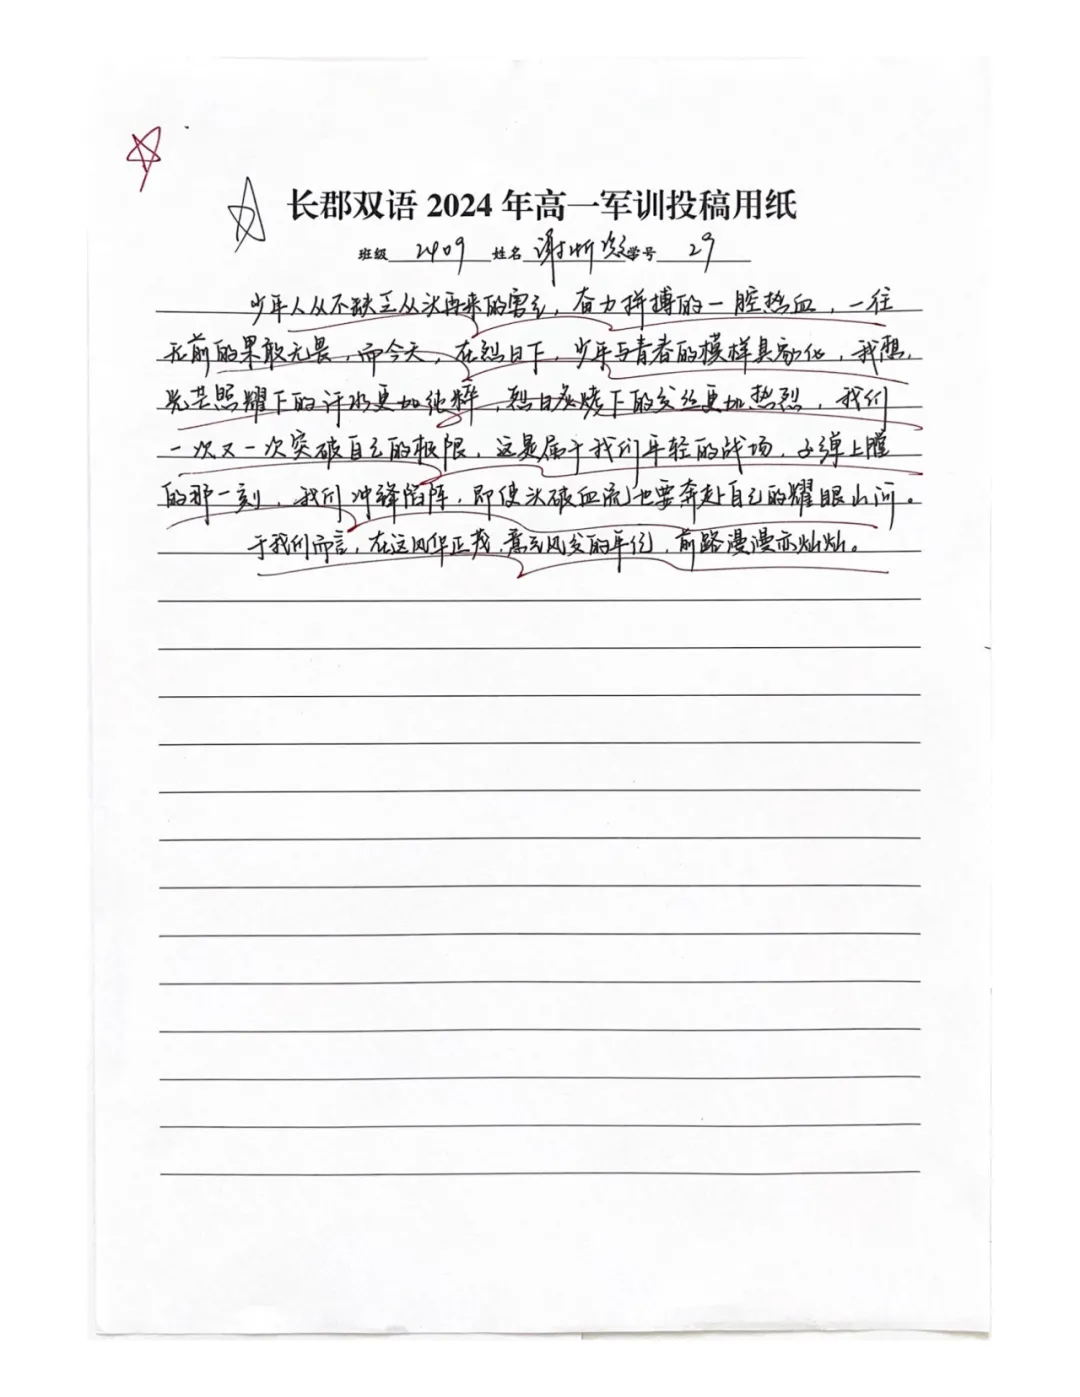 长郡双语 2024 年高一军训投稿用纸
班级 2409 姓名 谢昕 学号 29
少年人从不缺乏从头再来的勇气，奋力拼搏的一腔热血，一往
无前的果敢无畏，而今天，在烈日下，少年与青春的模样具象化，我想，
光芒照耀下的汗水更加纯粹，烈日炙烤下的发丝更加热烈，我们
一次又一次突破自己的极限，这是属于我们年轻的战场，子弹上膛
的那一刻，我们冲锋陷阵，即使头破血流也要奔赴自己的耀眼山河。
于我们而言，在这风华正茂，意气风发的年纪，前路漫漫亦灿灿。